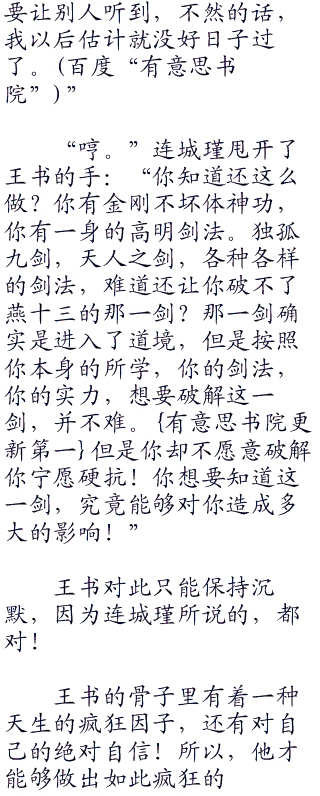 要让别人听到，不然的话，
我以后估计就没好日子过
了。(百度“有意思书
院”)”
“哼。”连城瑾甩开了
王书的手：“你知道还这么
做？你有金刚不坏体神功，
你有一身的高明剑法。独孤
九剑，天人之剑，各种各样
的剑法，难道还让你破不了
燕十三的那一剑？那一剑确
实是进入了道境，但是按照
你本身的所学，你的剑法，
你的实力，想要破解这一
剑，并不难。{有意思书院更
新第一}但是你却不愿意破解
你宁愿硬抗！你想要知道这
一剑，究竟能够对你造成多
大的影响！”
王书对此只能保持沉
默，因为连城瑾所说的，都
对！
王书的骨子里有着一种
天生的疯狂因子，还有对自
己的绝对自信！所以，他才
能够做出如此疯狂的